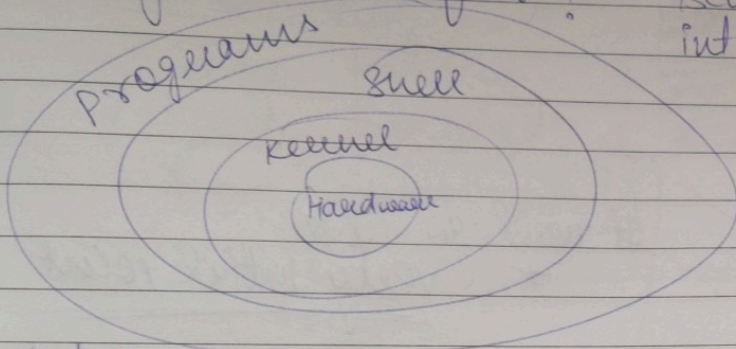 int
programs
Shell
Kernel
Hardware